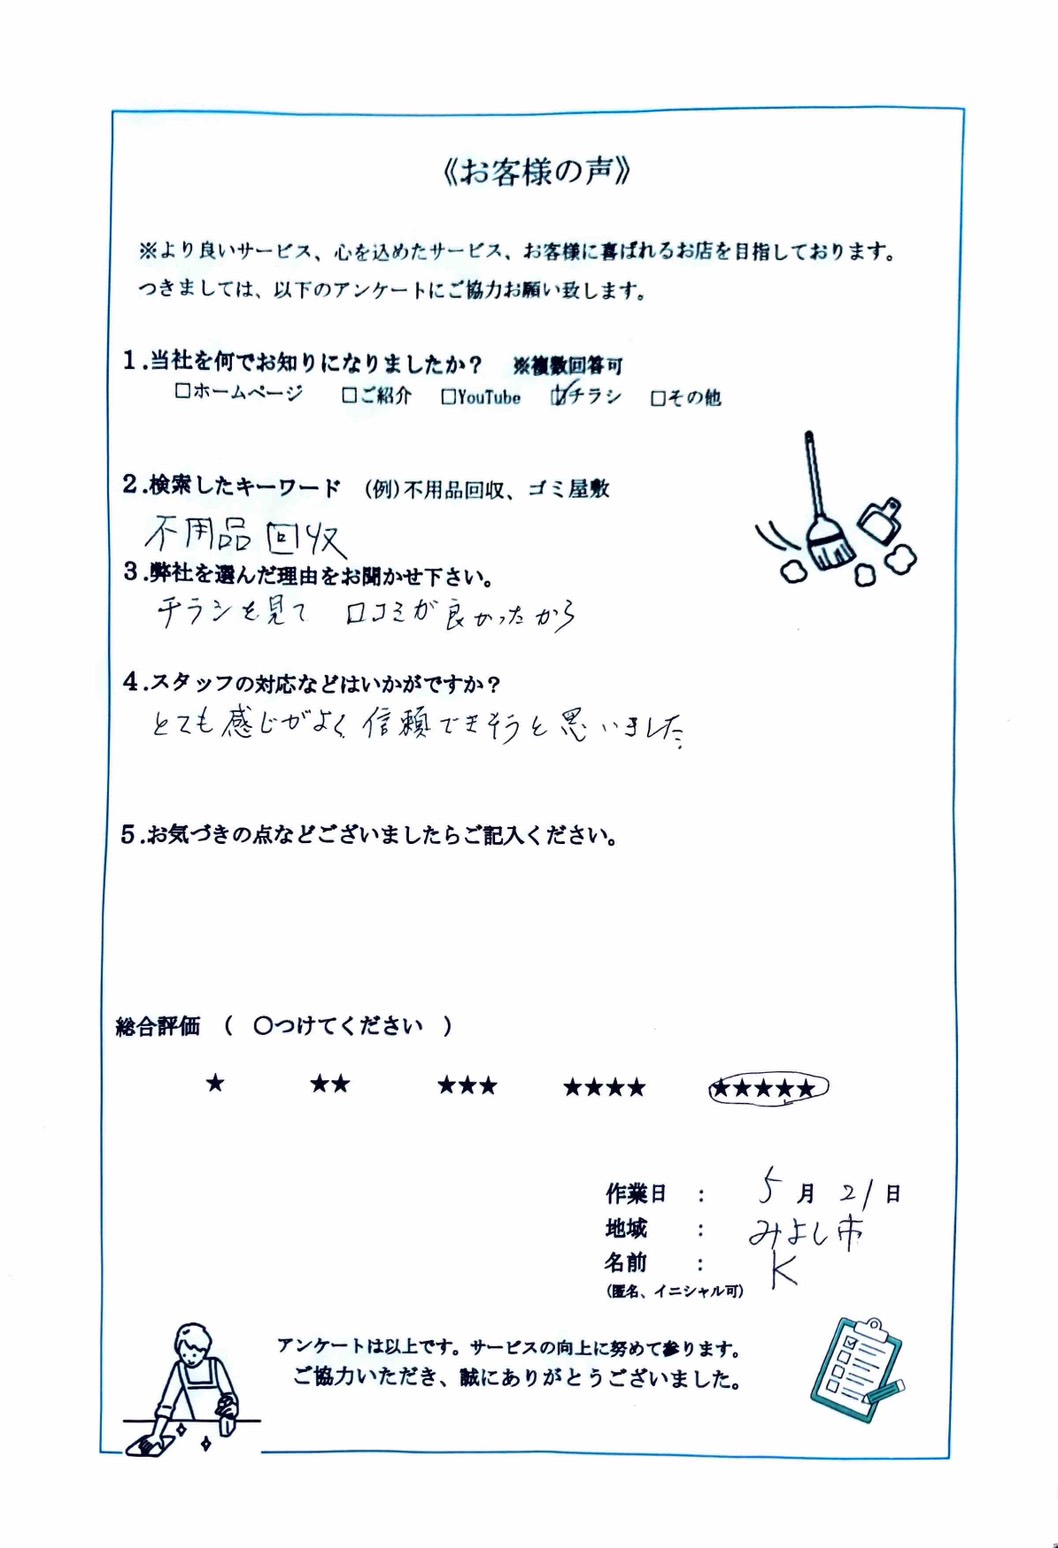 《お客様の声》
※より良いサービス、心を込めたサービス、お客様に喜ばれるお店を目指しております。
つきましては、以下のアンケートにご協力お願い致します。
1.当社を何でお知りになりましたか？　※複数回答可
□ホームページ　□ご紹介　□YouTube　☑チラシ　□その他
2.検索したキーワード　(例)不用品回収、ゴミ屋敷
不用品回収
3.弊社を選んだ理由をお聞かせ下さい。
チラシを見て　口コミが良かったから
4.スタッフの対応などはいかがですか？
とても感じがよく信頼できそうと思いました
5.お気づきの点などございましたらご記入ください。
総合評価　(　〇つけてください　)
★　★★　★★★　★★★★　★★★★★
作業日　：　5月21日
地域　：　みよし市
名前　：　K
(匿名、イニシャル可)
アンケートは以上です。サービスの向上に努めて参ります。
ご協力いただき、誠にありがとうございました。